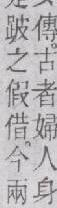 傳古者婦人身
跛之假借今兩